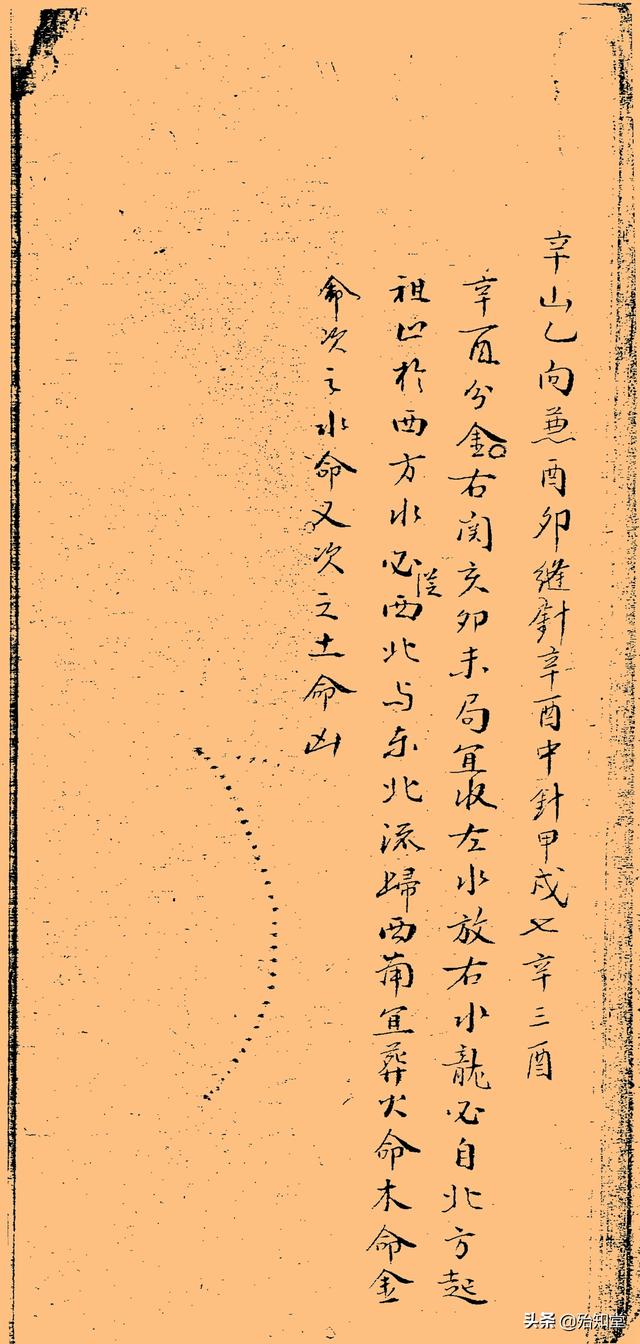 辛山乙向兼酉卯縫針辛酉中針甲戍七辛三酉
辛酉分金。右関亥卯未局宜收左水放右水龍必自北方起
祖凸於西方水必從西北与东北流歸西南宜葬火命木命金
命次之水命又次之土命凶
头条 @殆知堂